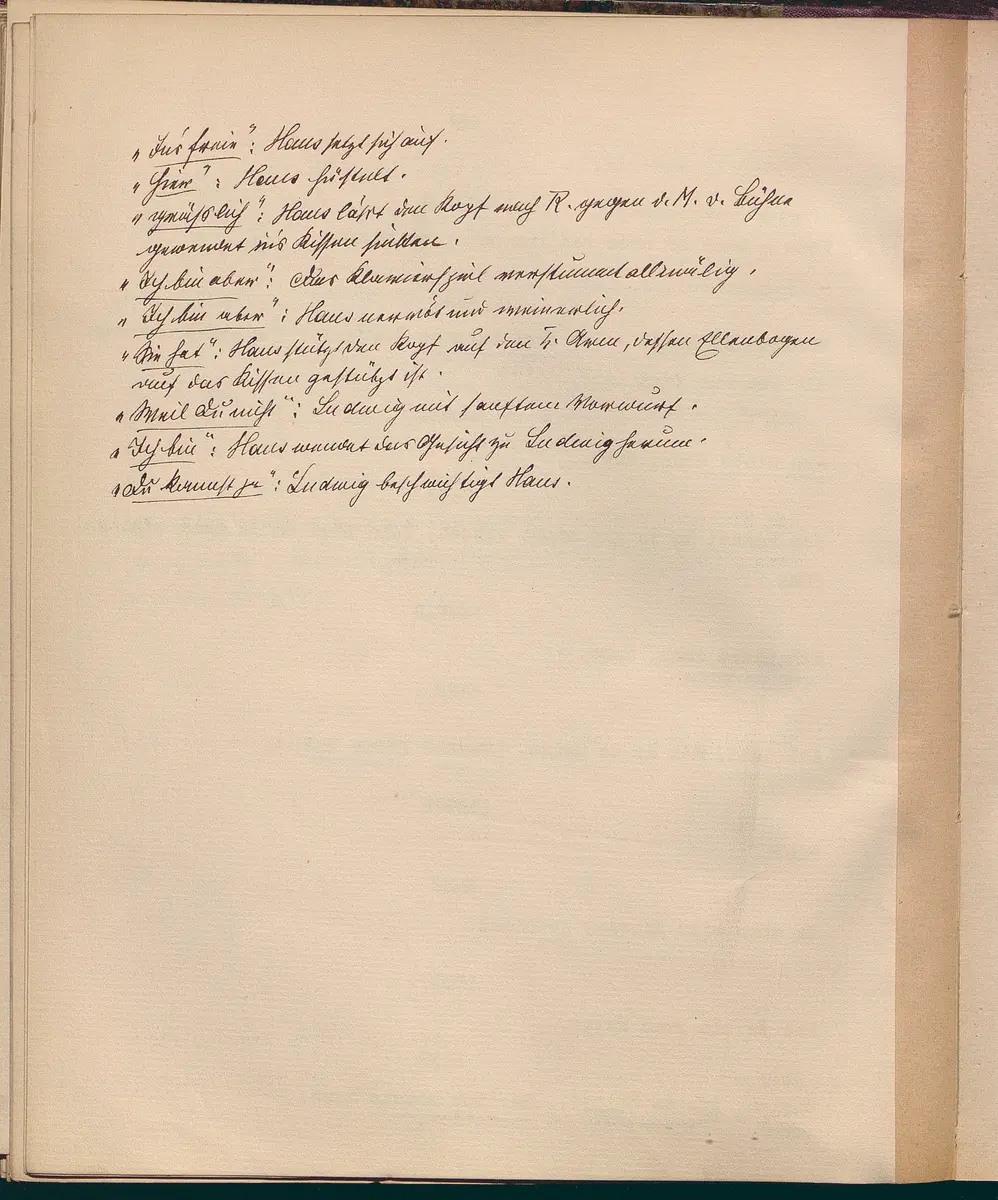 „Ins freie“: Hans setzt sich auf.
„Hier“: Hans hüstelt.
„grässlich“: Hans lässt den Kopf nach R. gegen d. M. d. Bühne
gewendet in's Kissen sinken.
„Ich bin aber“: Das Klavierspiel verstummt allmälig.
„Ich bin aber“: Hans nervös und weinerlich.
„Sie hat“: Hans stützt den Kopf auf den L. Arm, dessen Ellenbogen
auf das Kissen gestützt ist.
„Weil Du nicht“: Ludwig mit sanftem Vorwurf.
„Ich bin“: Hans wendet das Gesicht zu Ludwig herum.
„Du kannst ja“: Ludwig beschwichtigt Hans.